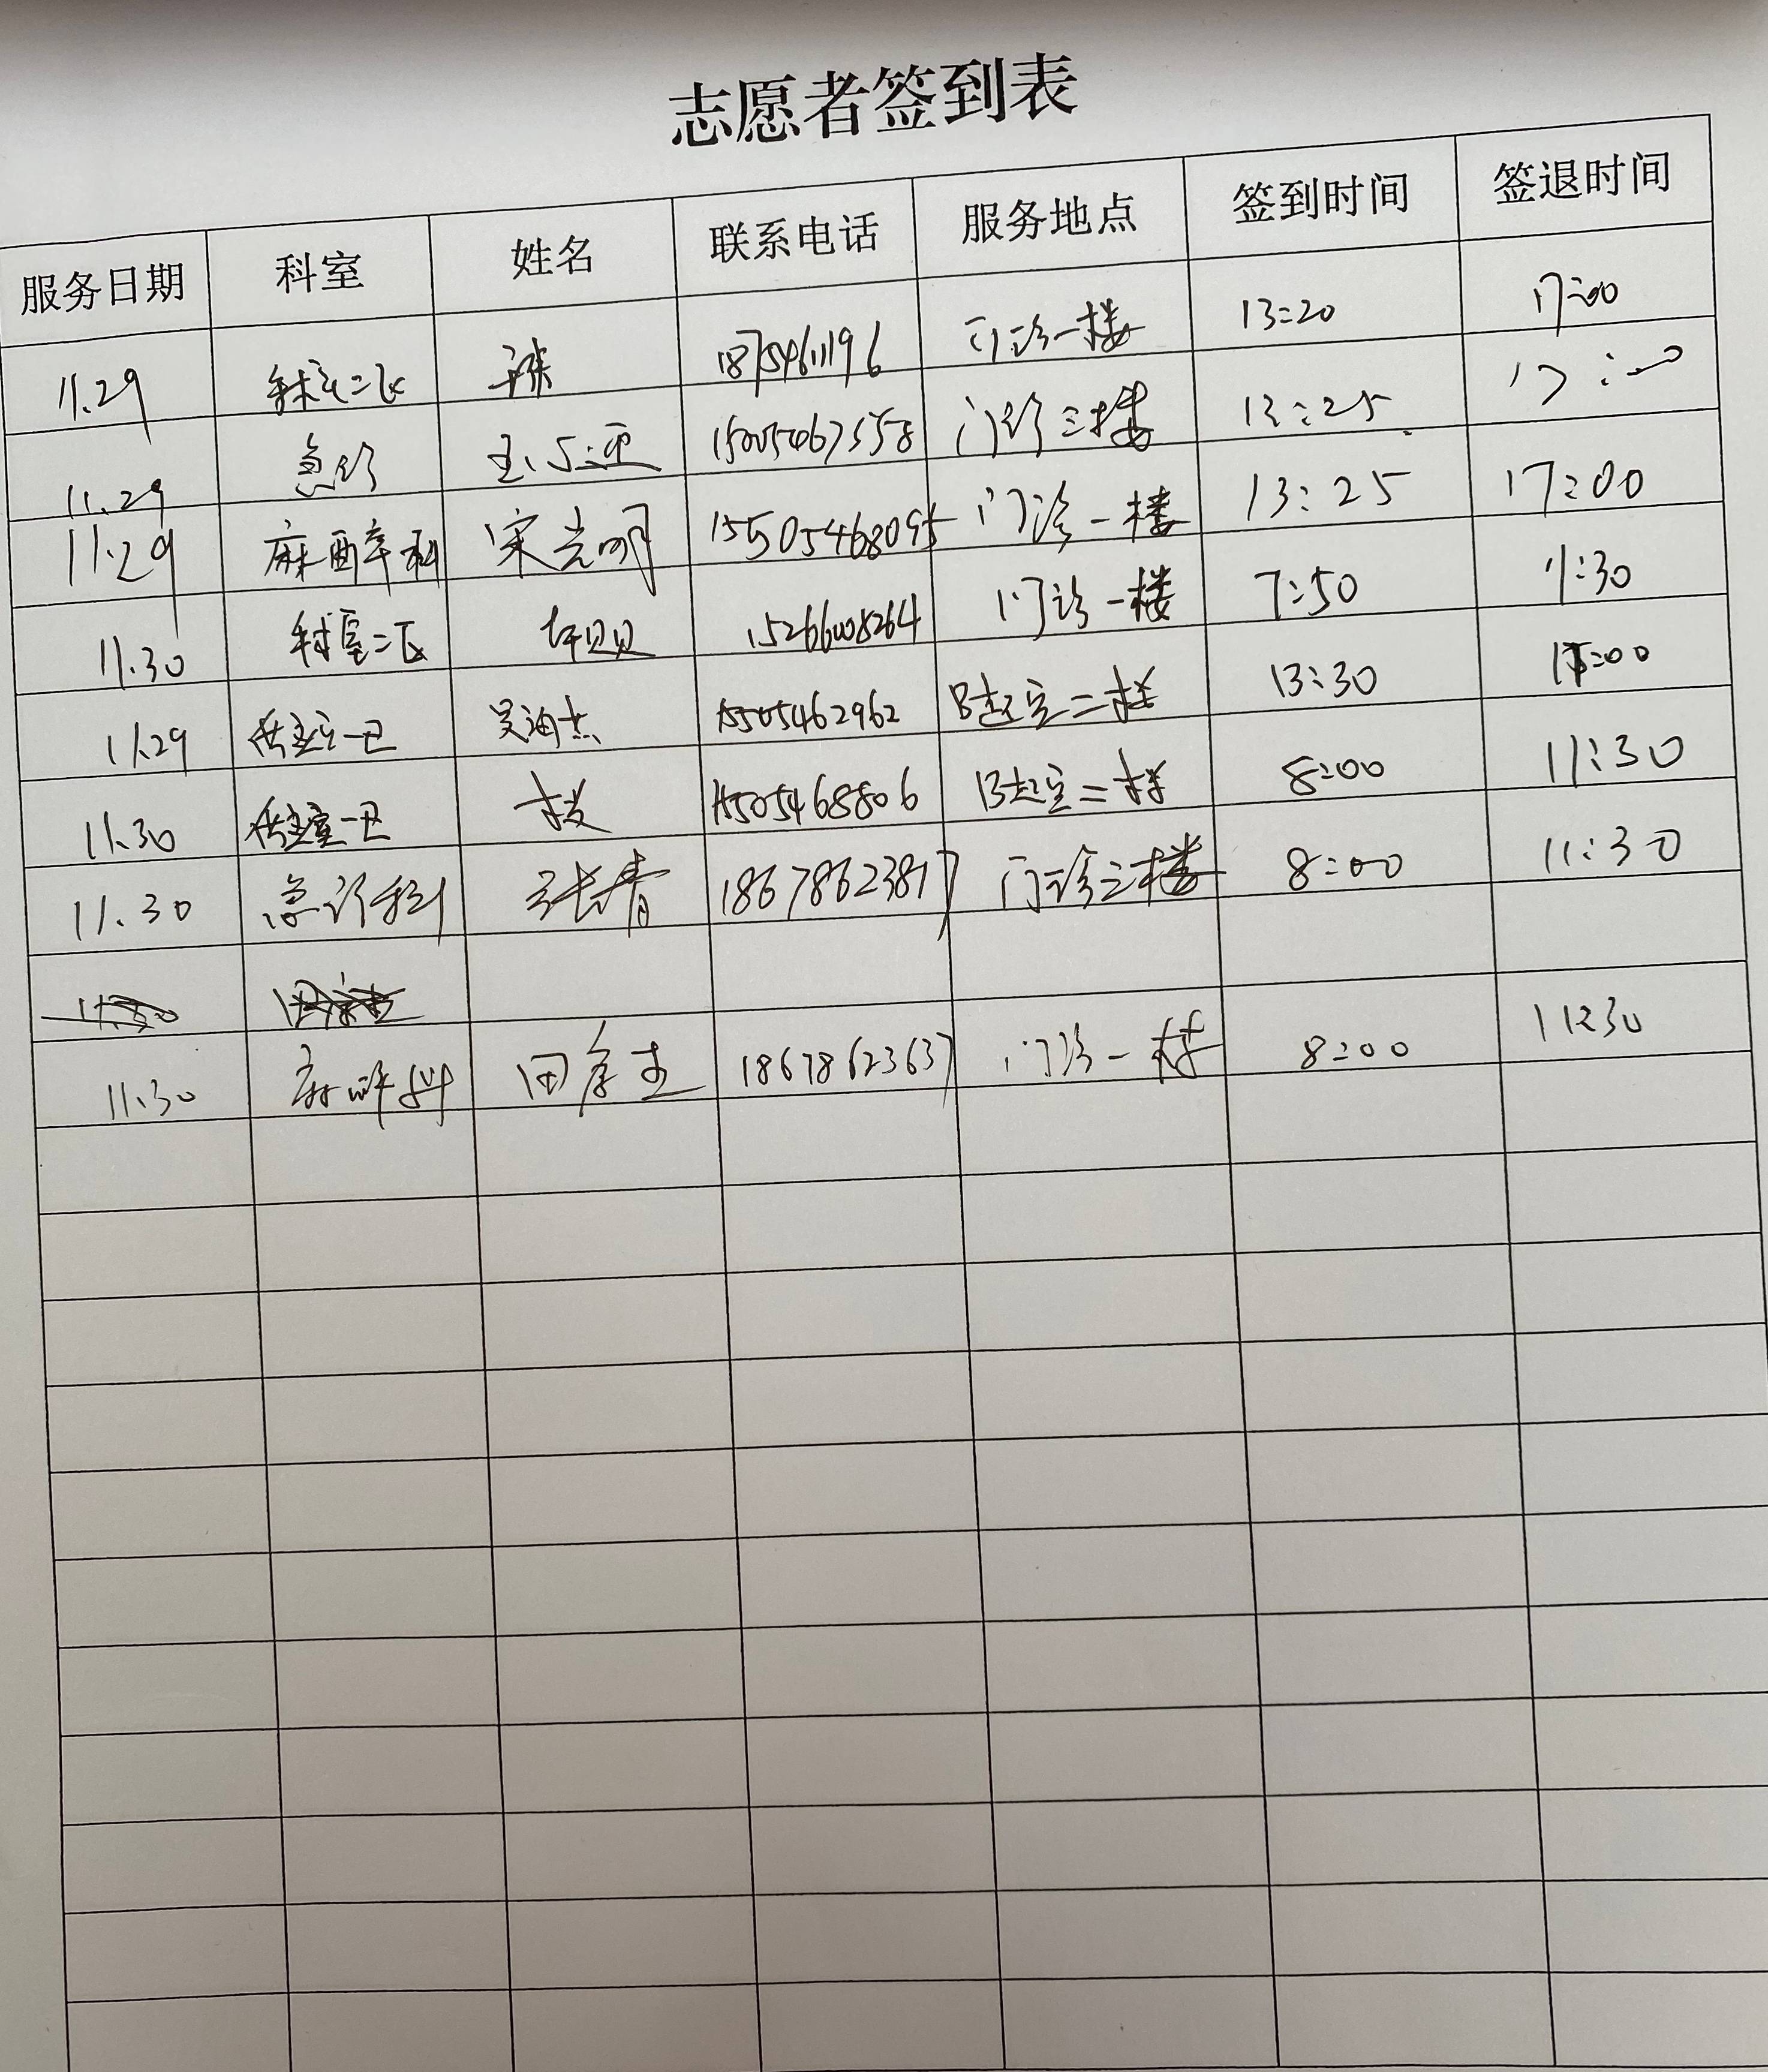 志愿者签到表
服务日期 科室 姓名 联系电话 服务地点 签到时间 签退时间
11.29 18754611196 门诊一楼 13:20 17:00
11.29 急诊 门诊三楼 13:25 17:00
11.29 麻醉科 宋光明 15505468095 门诊一楼 13:25 17:00
11.30 二区 15266008264 门诊一楼 7:50 11:30
11.29 15505462962 B超室二楼 13:30 17:00
11.30 15505468806 B超室二楼 8:00 11:30
11.30 急诊科 张青 18678623817 门诊三楼 8:00 11:30
11.30 麻醉科 18678623637 门诊一楼 8:00 11:30